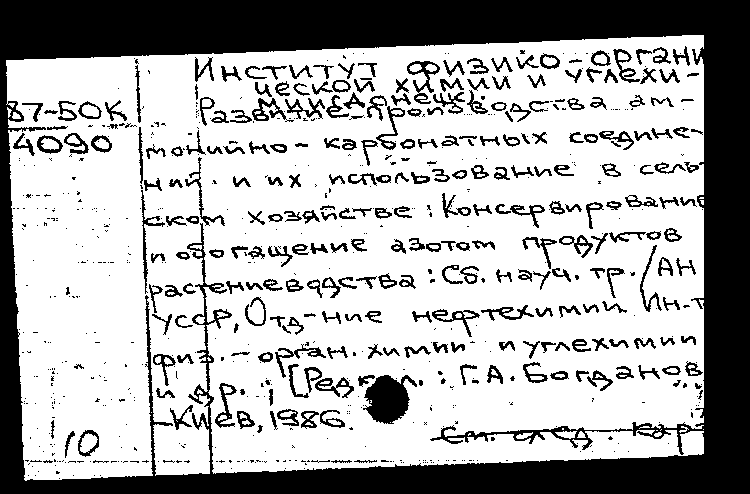 Институт физико-органи
ческой химии и углехи-
мии (Донецк).
87-БОК
Развитие производства ам-
4090
монийно-карбонатных соедине-
ний и их использование в сель-
ском хозяйстве: Консервирование
и обогащение азотом продуктов
растениеводства: Сб. науч. тр./АН
УССР, Отд-ние нефтехимии Ин-т
физ.-орган. химии и углехимии
и др.; [Редкол.: Г.А. Богданов
-Киев, 1986.
10
См. след. кар